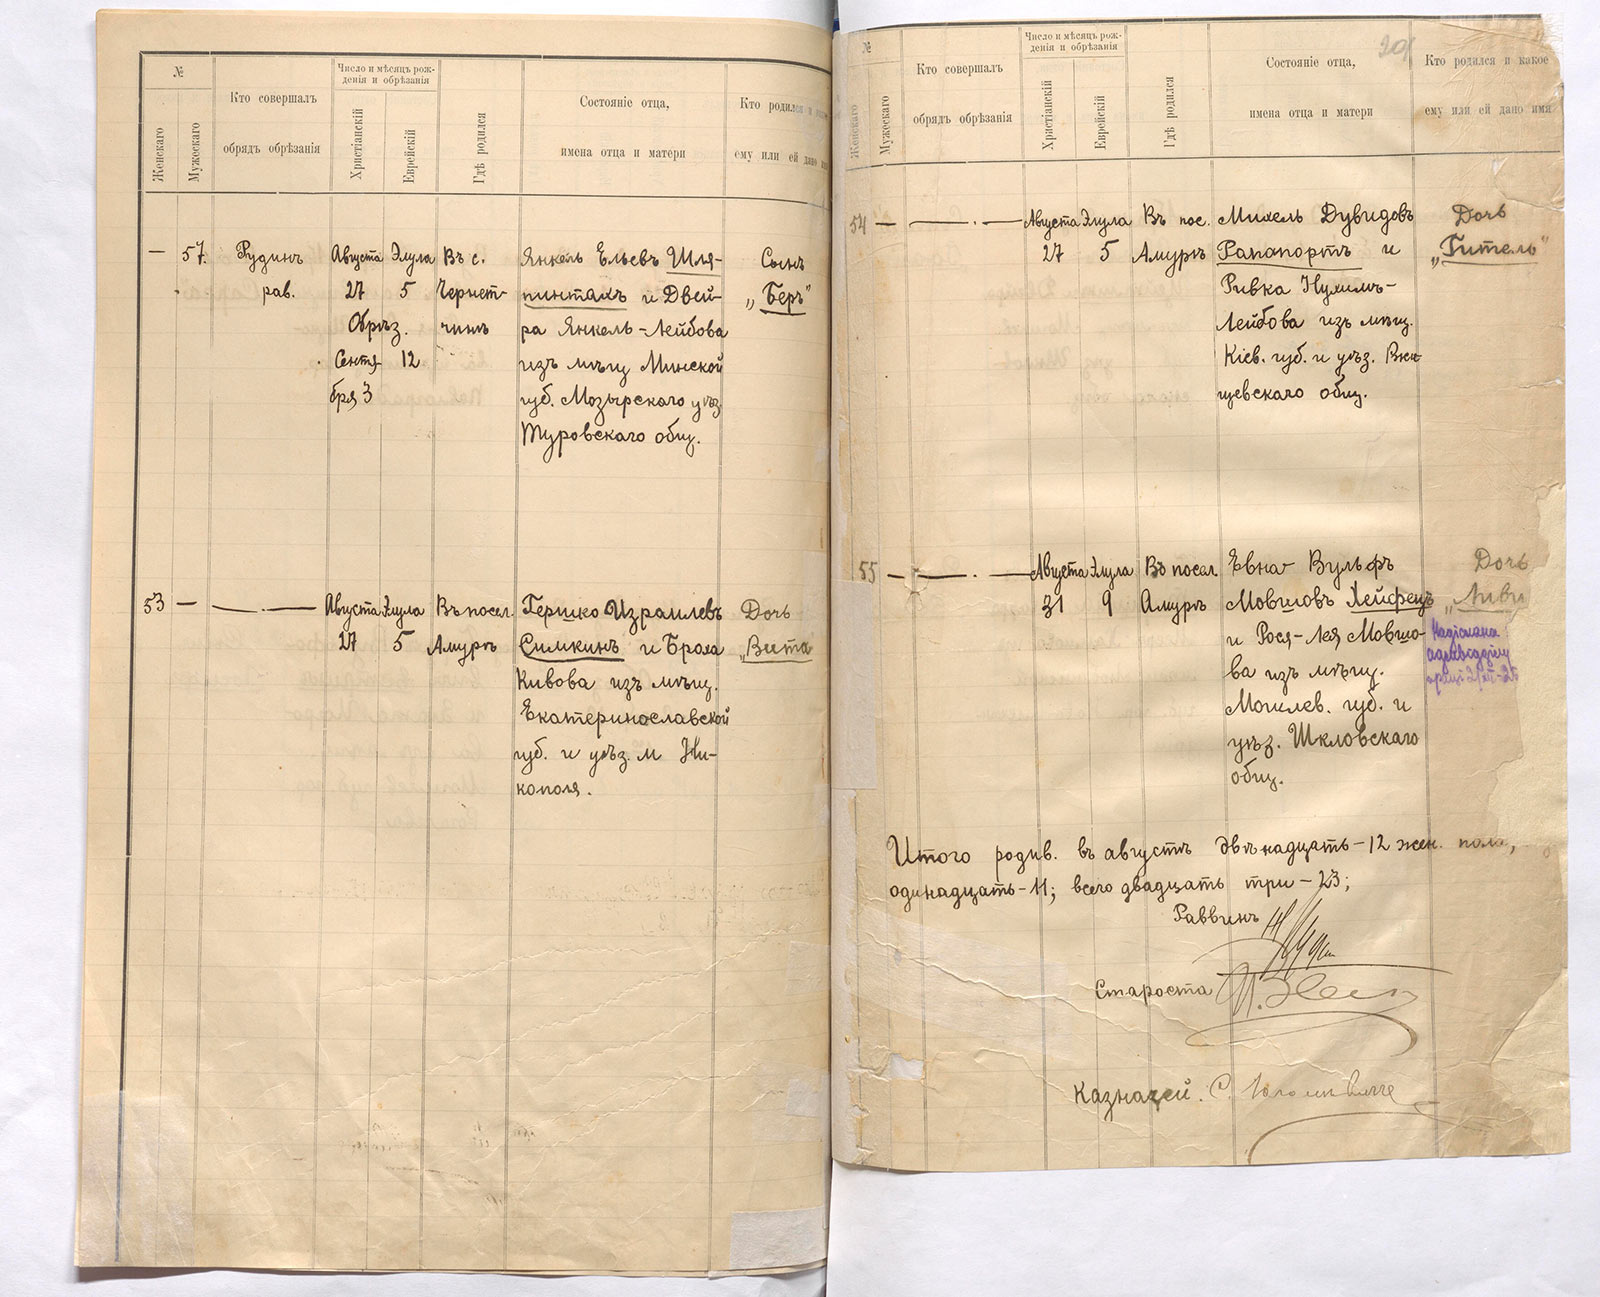 №
Женскаго
Мужескаго
Кто совершалъ
обрядъ обрѣзанія
Число и мѣсяцъ рож-
денія и обрѣзанія
Христіанскій
Еврейскій
Гдѣ родился
Состояніе отца,
имена отца и матери
Кто родился и
ему или ей дано
— 57. Рудинъ Августа Элула Въ с. Янкель Ельевъ Шля- Сынъ
рав. 27 5 Чернет- пинтахъ и Двей- „Беръ"
Обрѣз. чинъ ра Янкель-Лейбова
Сентя- 12 изъ мѣщ Минской
бря 3 губ. Мозырскаго уѣз
Туровскаго общ.
53 — — . — Августа Элула Въ посел. Гершко Израилевъ Дочь
27 5 Амуръ Симкинъ и Броха „Вита
Кивова изъ мѣщ.
Екатеринославской
губ. и уѣз. м Ни-
кополя.
№
Женскаго
Мужескаго
Кто совершалъ
обрядъ обрѣзанія
Число и мѣсяцъ рож-
денія и обрѣзанія
Христіанскій
Еврейскій
Гдѣ родился
Состояніе отца,
имена отца и матери
Кто родился и какое
ему или ей дано имя
54 — — . — Августа Элула Въ пос. Михель Дувидовъ Дочь
27 5 Амуръ Рапапортъ и „Гитель"
Ривка Нухимъ-
Лейбова изъ мѣщ.
Кіев. губ. и уѣз.
общ.
55 — — . — Августа Элула Въ посел. Евна-Вульфъ Дочь
31 9 Амуръ Мовшовъ Хейфецъ „Ливи
и Рося-Лея Мовшо-
ва изъ мѣщ.
Могилев. губ. и
уѣз. Шкловскаго
общ.
Надіслана
Итого родив. въ августѣ двѣнадцать-12 жен. пола,
одинадцать-11; всего двадцать три-23;
Раввинъ
Староста
Казначей. С.